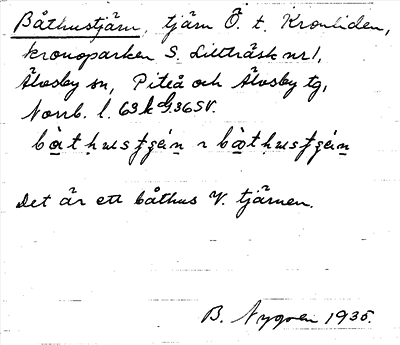 Båthustjärn, tjärn Ö. t. Kronliden,
kronoparken S. Lillträsk nr 1,
Älvsby sn, Piteå och Älvsby tg,
Norrb. l. 63 k G 36 SV.
Det är ett båthus V. tjärnen.
B. Nygren 1935.